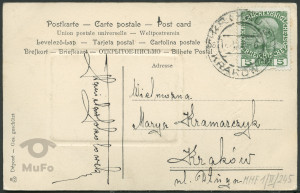 Postkarte — Carte postale — Post card
Union postale universelle — Weltpostverein
Levelező-Lap — Tarjeta postal — Cartolina postale
Brefkort — Briefkaart — ОТКРЫТОЕ ПИСЬМО — Bilhete Postal
Adresse
KRAKÓW
5
5
Wielmożna
Marya Kramarczyk
Kraków
ul. Długa
MuFo